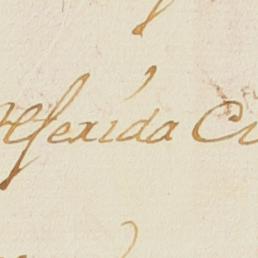 referida Ci